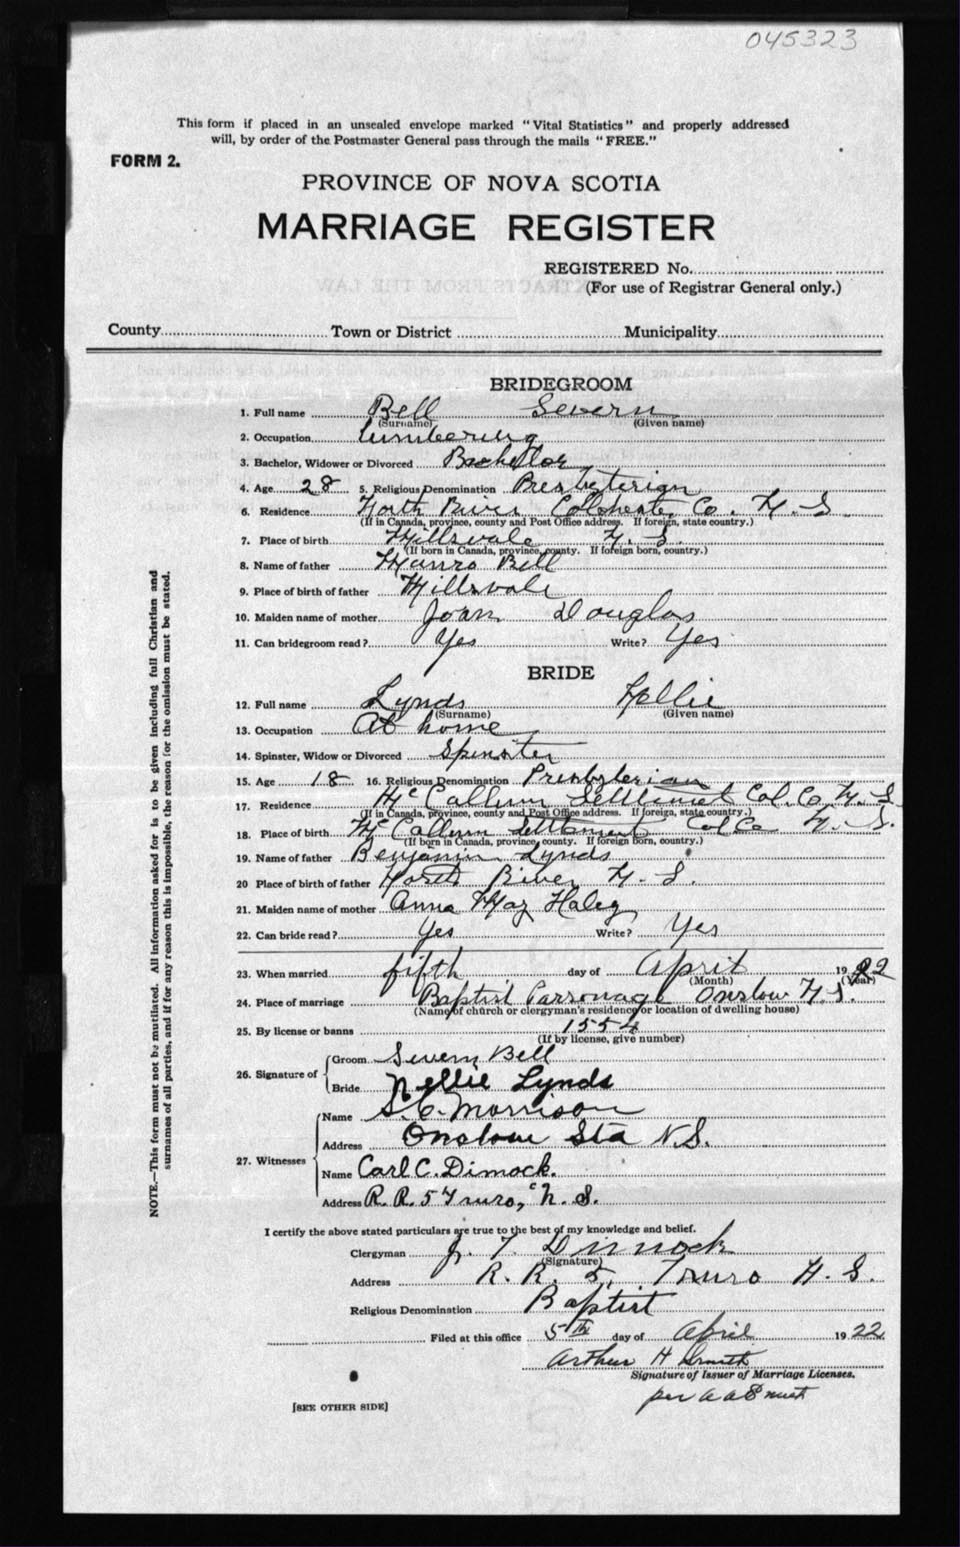 045323
This form if placed in an unsealed envelope marked "Vital Statistics" and properly addressed
will, by order of the Postmaster General pass through the mails "FREE."
FORM 2.
PROVINCE OF NOVA SCOTIA
MARRIAGE REGISTER
REGISTERED No.
(For use of Registrar General only.)
County Town or District Municipality
BRIDEGROOM
1. Full name Bell Severn
(Surname) (Given name)
2. Occupation Lumbering
3. Bachelor, Widower or Divorced Bachelor
4. Age 28 5. Religious Denomination Presbyterian
6. Residence North River Colchester Co. N. S.
(If in Canada, province, county and Post Office address. If foreign, state country.)
7. Place of birth Millsvale N. S.
(If born in Canada, province, county. If foreign born, country.)
8. Name of father Munro Bell
9. Place of birth of father Millsvale
10. Maiden name of mother Joan Douglas
11. Can bridegroom read? Yes Write? Yes
BRIDE
12. Full name Lynds Nellie
(Surname) (Given name)
13. Occupation At home
14. Spinster, Widow or Divorced Spinster
15. Age 18 16. Religious Denomination Presbyterian
17. Residence McCallum Settlement Col. Co. N. S.
(If in Canada, province, county and Post Office address. If foreign, state country.)
18. Place of birth McCallum Settlement Col Co N. S.
(If born in Canada, province, county. If foreign born, country.)
19. Name of father Benjamin Lynds
20 Place of birth of father North River N. S.
21. Maiden name of mother Anna May Haley
22. Can bride read? Yes Write? Yes
23. When married fifth day of April 1922
(Month) (Year)
24. Place of marriage Baptist Parsonage Onslow N. S.
(Name of church or clergyman's residence or location of dwelling house)
25. By license or banns 1554
(If by license, give number)
26. Signature of Groom Severn Bell
Bride Nellie Lynds
27. Witnesses Name S. C. Morrison
Address Onslow Sta N.S.
Name Carl C. Dimock.
Address R. R. 5 Truro, N. S.
I certify the above stated particulars are true to the best of my knowledge and belief.
Clergyman J. T. Dimock
(Signature)
Address R. R. 5, Truro N. S.
Religious Denomination Baptist
Filed at this office 5th day of April 1922
Arthur H Smith
Signature of Issuer of Marriage Licenses.
per A A Smith
[SEE OTHER SIDE]
NOTE.—This form must not be mutilated. All information asked for is to be given including full Christian and
surnames of all parties, and if for any reason this is impossible, the reason for the omission must be stated.